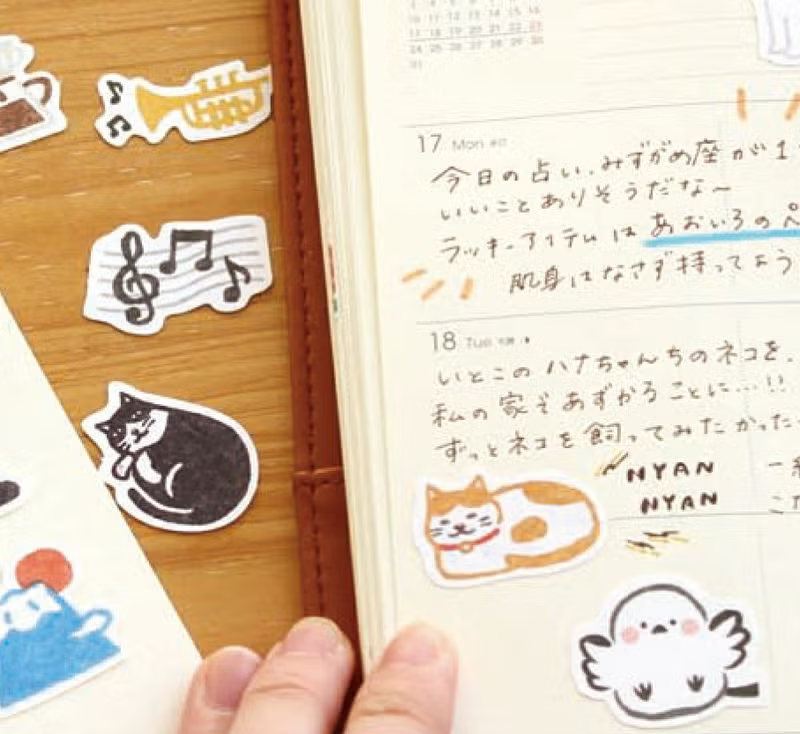 16 17 18 19 20 21 22 23
24 25 26 27 28 29 30
31
17 Mon
今日の占い、みずがめ座が1
いいことありそうだな〜
ラッキーアイテムは あおいろのペ
肌身はなさず持ってよう
18 Tue
いとこのハナちゃんちのネコを、
私の家であずかることに…!!
ずっとネコを飼ってみたかった
NYAN
NYAN